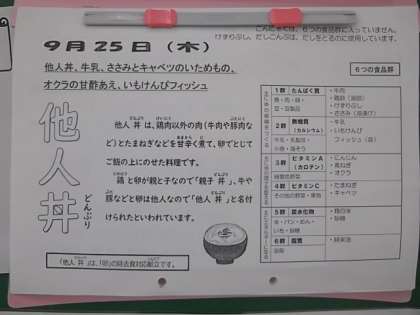 こんにゃくは、6つの食品群に入っていません。
けずりぶし、だしこんぶは、だしをとるのに使用しています。
9月25日(木)
他人丼、牛乳、ささみとキャベツのいためもの、
オクラの甘酢あえ、いもけんぴフィッシュ
6つの食品群
他人丼
どんぶり
他人丼は、鶏肉以外の肉(牛肉や豚肉な
ど)とたまねぎなどを甘辛く煮て、卵でとじて
ご飯の上にのせた料理です。
鶏と卵が親と子なので「親子丼」、牛や
豚などと卵は他人なので「他人丼」と名付
けられたといわれています。
「他人丼」は、「卵」の除去食対応献立です。
1群 たんぱく質
魚・肉・卵・
豆・豆製品
・牛肉
・鶏卵
・けずりぶし
・ささみ
2群 無機質
(カルシウム)
牛乳・乳製品・
小魚・海そう
・牛乳
・いもけんぴ
フィッシュ
3群 ビタミンA
(カロテン)
緑黄色野菜
・にんじん
・葉ねぎ
・オクラ
4群 ビタミンC
その他の野菜・果物
・たまねぎ
・キャベツ
5群 炭水化物
米・パン・めん・
いも・砂糖
・精白米
・砂糖
6群 脂質
油脂
・綿実油